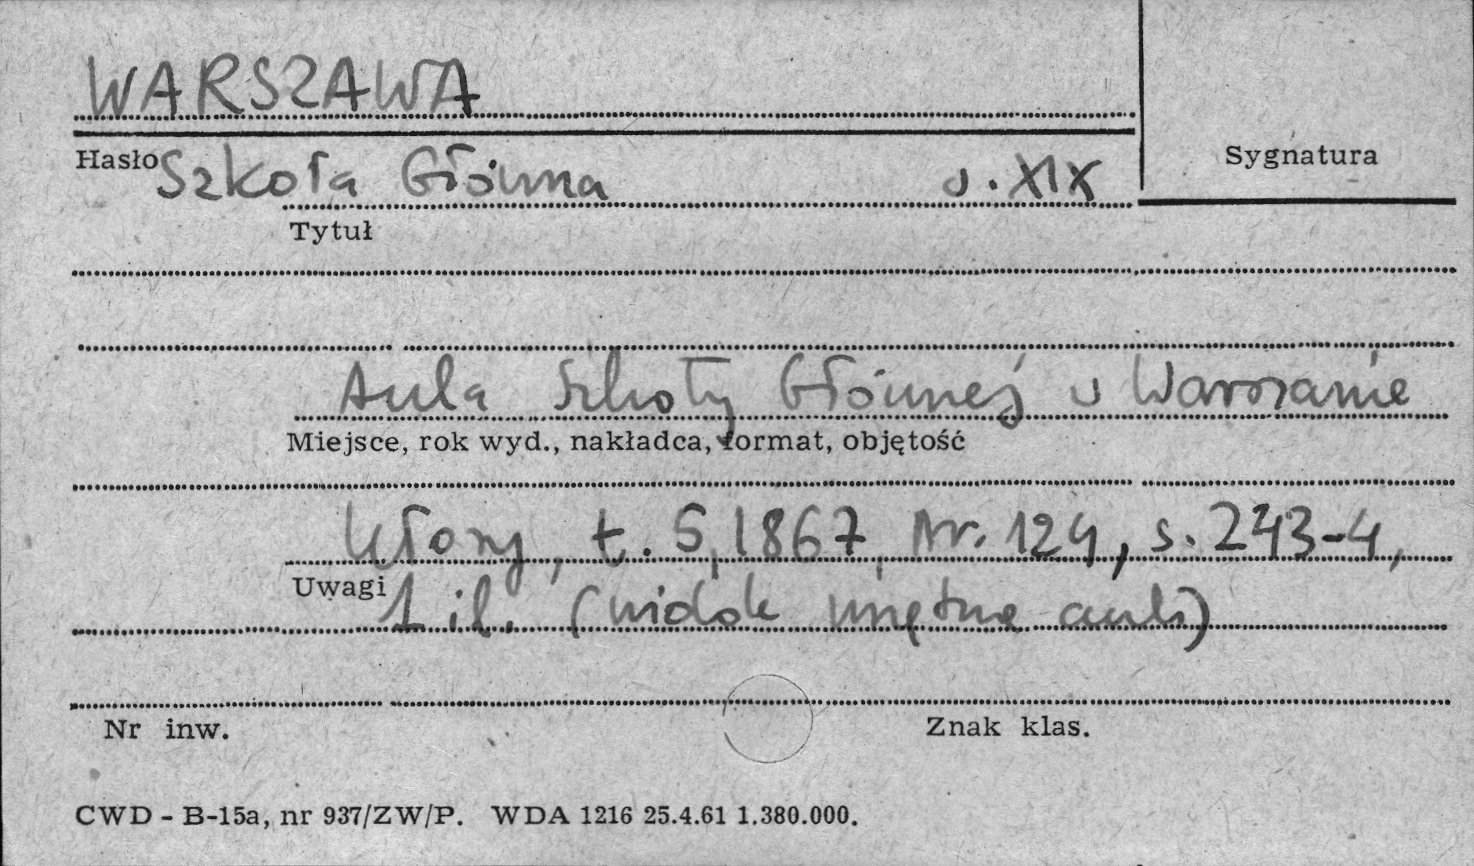 WARSZAWA
Hasło Szkoła Główna w. XIX
Sygnatura
Tytuł
Aula Szkoły Głównej w Warszawie
Miejsce, rok wyd., nakładca, format, objętość
Kłosy, t. 5, 1867, Nr. 124, s. 243-4,
Uwagi
1 il. (widok wnętrza auli)
Nr inw.
Znak klas.
CWD - B-15a, nr 937/ZW/P. WDA 1216 25.4.61 1.380.000.